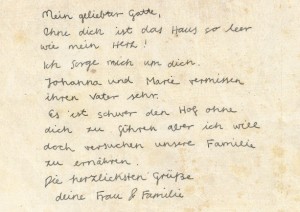 Mein geliebter Gatte,
Ohne dich ist das Haus so leer
wie mein Herz!
Ich sorge mich um dich.
Johanna und Marie vermissen
ihren Vater sehr.
Es ist schwer den Hof ohne
dich zu führen aber ich will
doch versuchen unsere Familie
zu ernähren.
Die herzlichsten Grüße
deine Frau & Familie